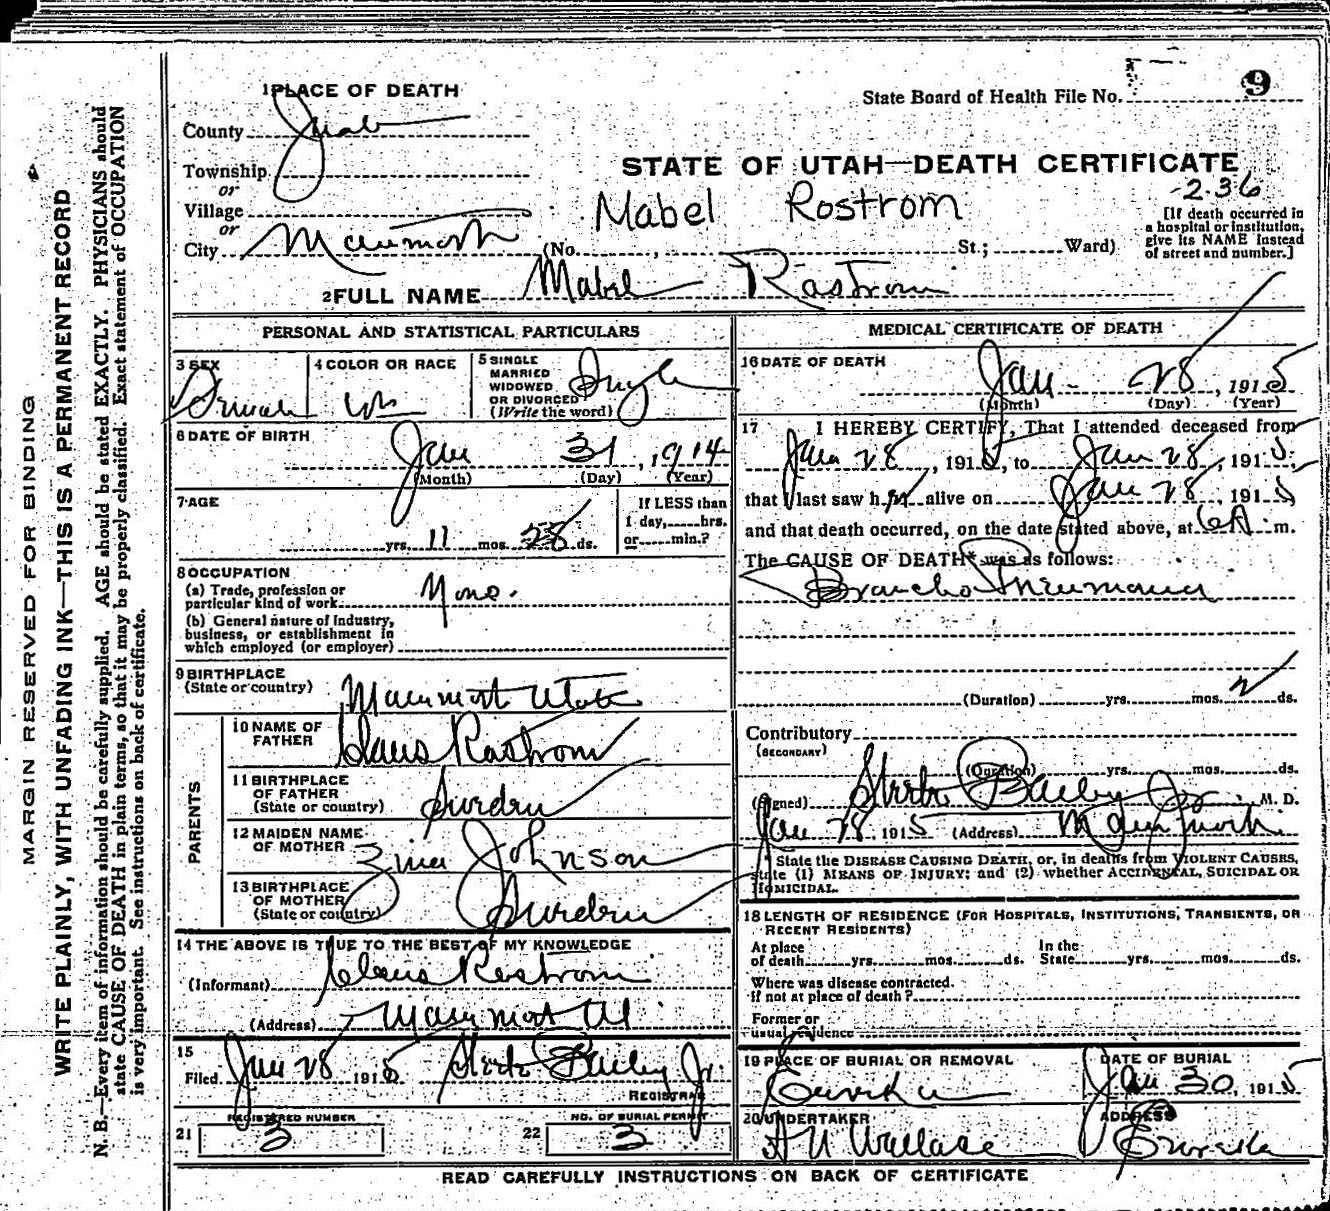 MARGIN RESERVED FOR BINDING
WRITE PLAINLY, WITH UNFADING INK—THIS IS A PERMANENT RECORD
N. B.—Every item of information should be carefully supplied. AGE should be stated EXACTLY. PHYSICIANS should
state CAUSE OF DEATH in plain terms, so that it may be properly classified. Exact statement of OCCUPATION
is very important. See instructions on back of certificate.
1 PLACE OF DEATH
State Board of Health File No. 9
County Juab
Township
or
Village
or
City Mammoth
STATE OF UTAH—DEATH CERTIFICATE
236
Mabel Rostrom
(No. , St.; Ward)
[If death occurred in
a hospital or institution,
give its NAME instead
of street and number.]
2 FULL NAME Mabel Rostrom
PERSONAL AND STATISTICAL PARTICULARS
3 SEX Female
4 COLOR OR RACE Wh
5 SINGLE
MARRIED
WIDOWED
OR DIVORCED
(Write the word) Single
6 DATE OF BIRTH
Jan 31, 1914
(Month) (Day) (Year)
7 AGE
yrs. 11 mos. 28 ds.
If LESS than
1 day, hrs.
or min.?
8 OCCUPATION
(a) Trade, profession or
particular kind of work None.
(b) General nature of industry,
business, or establishment in
which employed (or employer)
9 BIRTHPLACE
(State or country) Mammoth Utah
PARENTS
10 NAME OF
FATHER Claus Rostrom
11 BIRTHPLACE
OF FATHER
(State or country) Sweden
12 MAIDEN NAME
OF MOTHER Johnson
13 BIRTHPLACE
OF MOTHER
(State or country) Sweden
14 THE ABOVE IS TRUE TO THE BEST OF MY KNOWLEDGE
(Informant) Claus Rostrom
(Address) Mammoth Ut
15
Filed Jan 28 1915 Bailey Jr.
REGISTRAR
REGISTERED NUMBER
21 3
NO. OF BURIAL PERMIT
22 3
MEDICAL CERTIFICATE OF DEATH
16 DATE OF DEATH
Jan 28, 1915
(Month) (Day) (Year)
17 I HEREBY CERTIFY, That I attended deceased from
Jan 28, 1915, to Jan 28, 1915,
that I last saw h alive on Jan 28, 1915
and that death occurred, on the date stated above, at 6 A m.
The CAUSE OF DEATH* was as follows:
Broncho Pneumonia
(Duration) yrs. mos. 2 ds.
Contributory
(SECONDARY)
(Duration) yrs. mos. ds.
(Signed) Bailey Jr M. D.
Jan 28 1915 (Address) Mammoth
* State the DISEASE CAUSING DEATH, or, in deaths from VIOLENT CAUSES,
state (1) MEANS OF INJURY; and (2) whether ACCIDENTAL, SUICIDAL OR
HOMICIDAL.
18 LENGTH OF RESIDENCE (FOR HOSPITALS, INSTITUTIONS, TRANSIENTS, OR
RECENT RESIDENTS)
At place
of death yrs. mos. ds.
In the
State yrs. mos. ds.
Where was disease contracted,
if not at place of death?
Former or
usual residence
19 PLACE OF BURIAL OR REMOVAL
Eureka
DATE OF BURIAL
Jan 30, 1915
20 UNDERTAKER
Wallace
ADDRESS
Eureka
READ CAREFULLY INSTRUCTIONS ON BACK OF CERTIFICATE